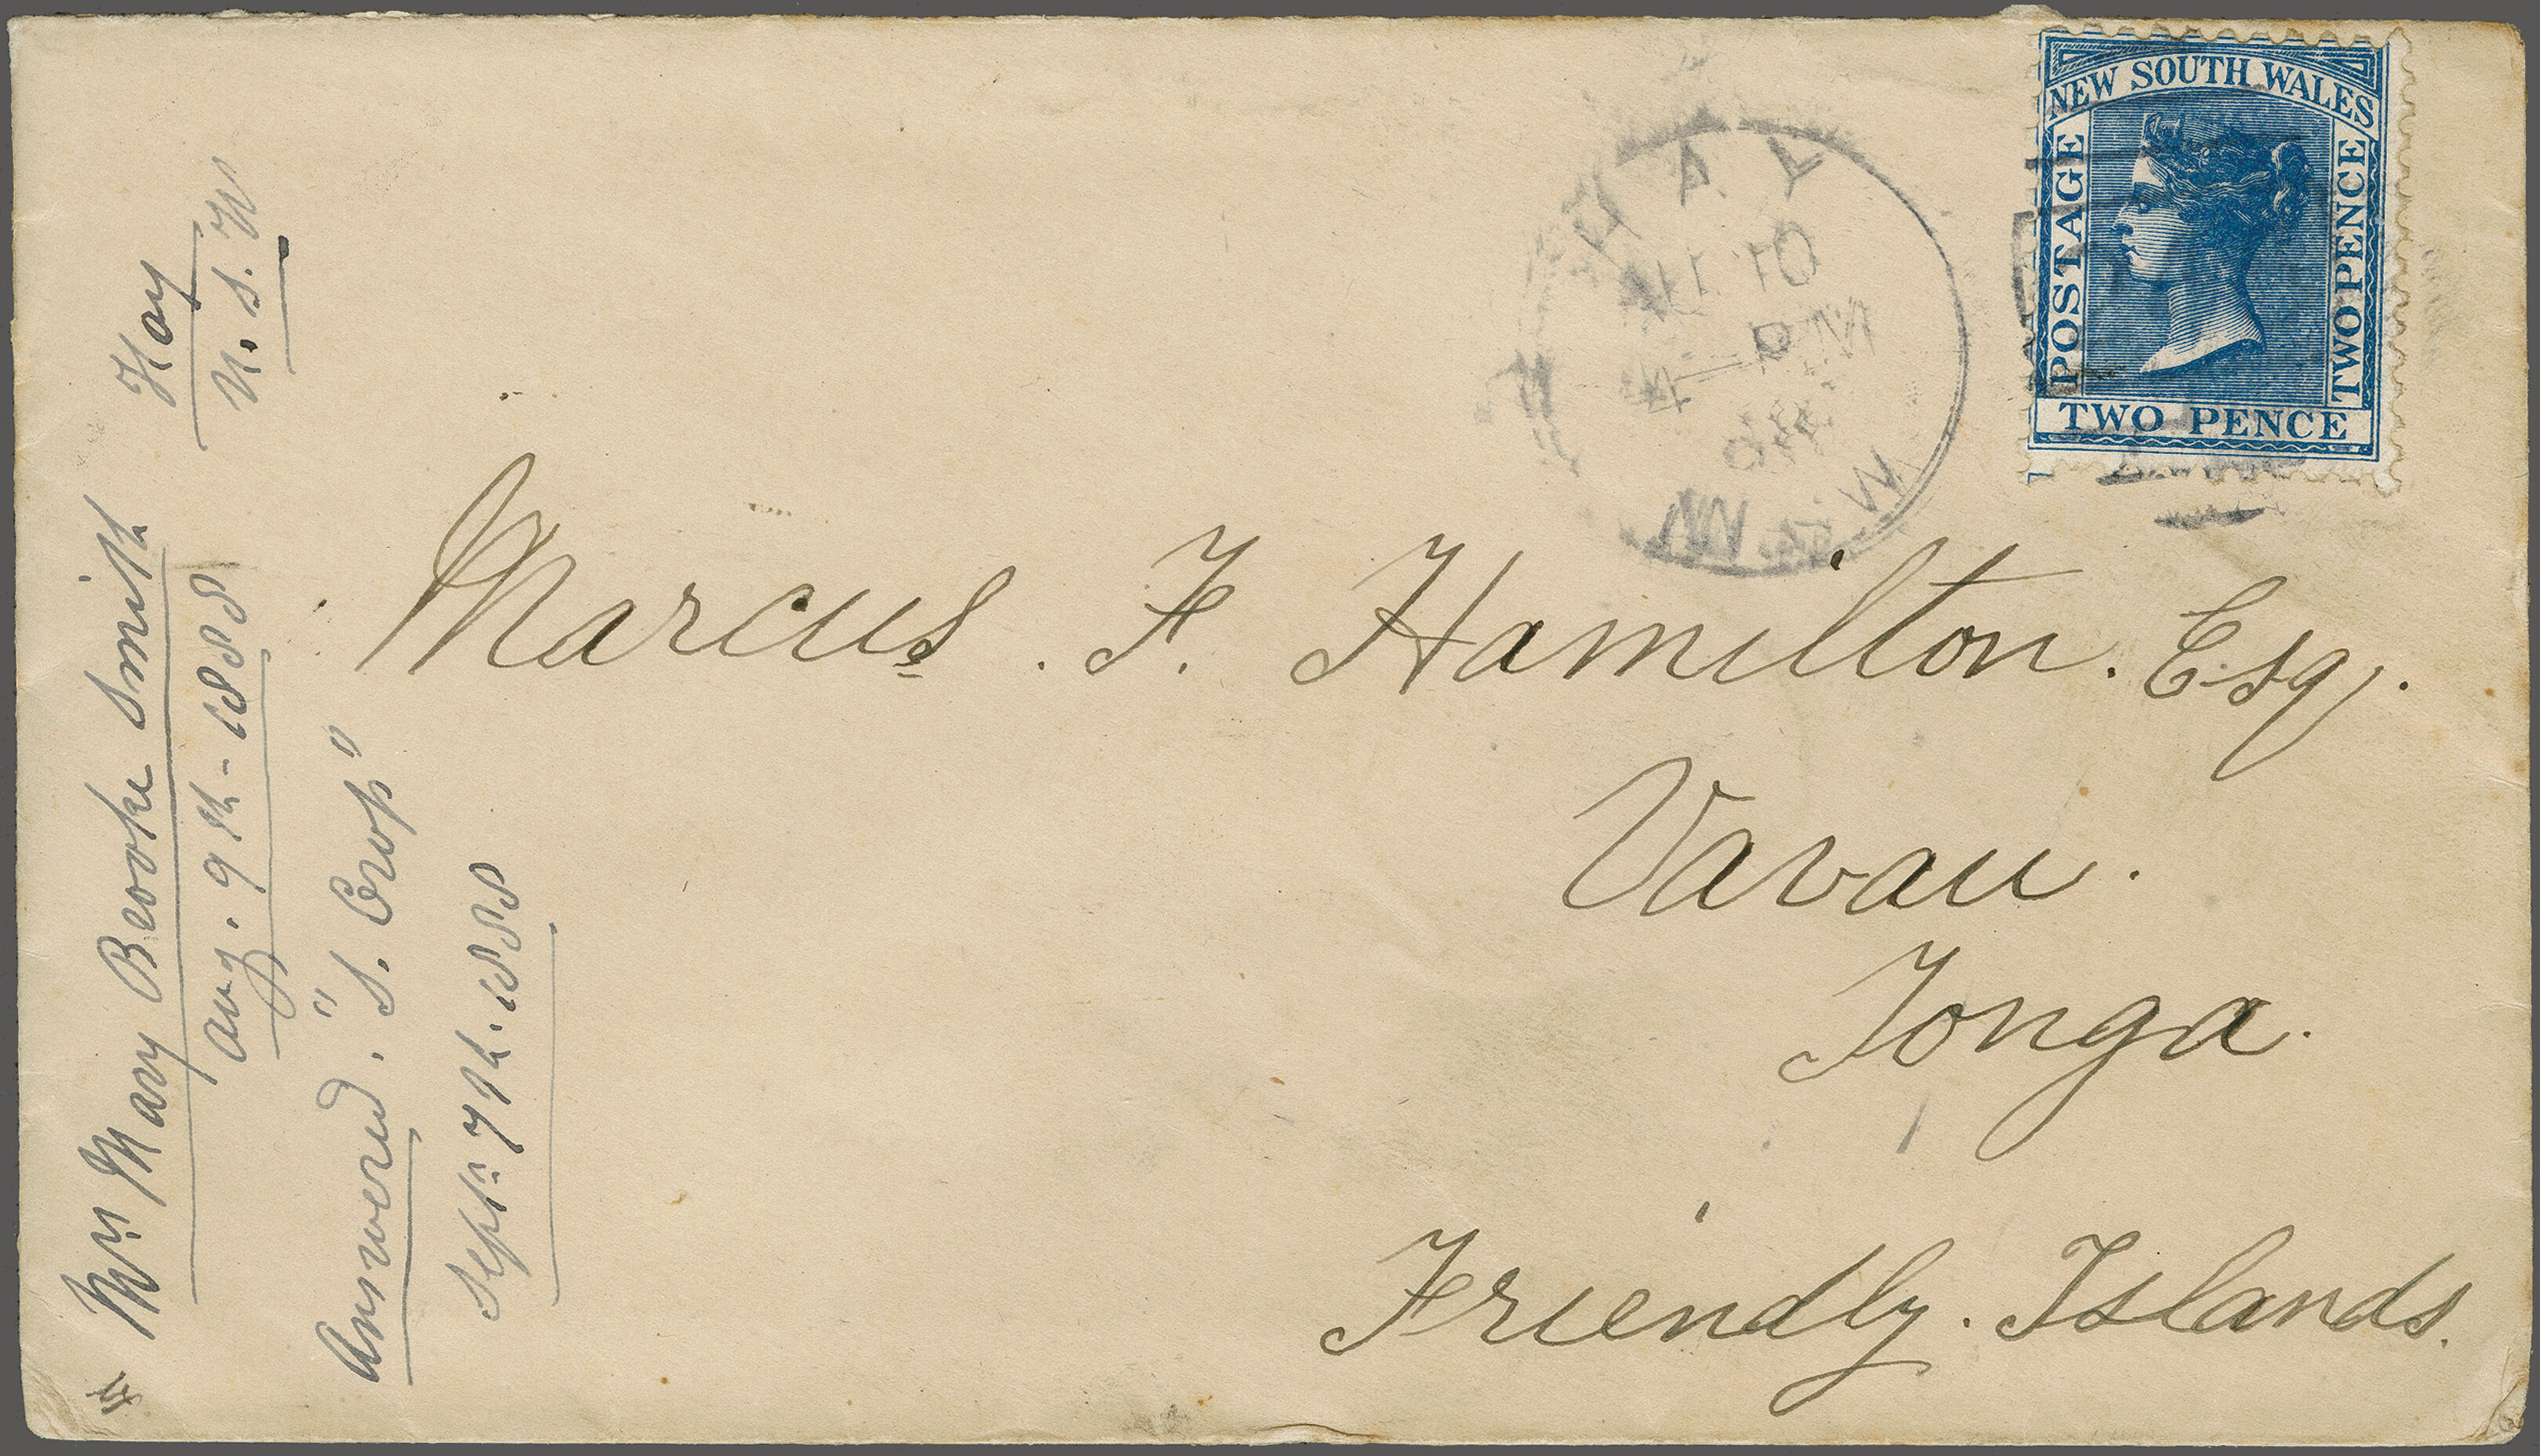 NEW SOUTH WALES
POSTAGE
TWO PENCE
TWO PENCE
HAY
AU 9
88
Marcus. F. Hamilton. Esq.
Vavau.
Tonga.
Friendly. Islands.
Mrs Mary Brooke Smith
Hay
N. S. W
Aug. 9th - 1888
Answered. "S. Crop"
Septr. 7th. 1888